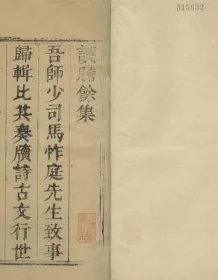 312652
餘集
吾師少司馬怍庭先生致事
歸輯比其奏牘詩古文行世